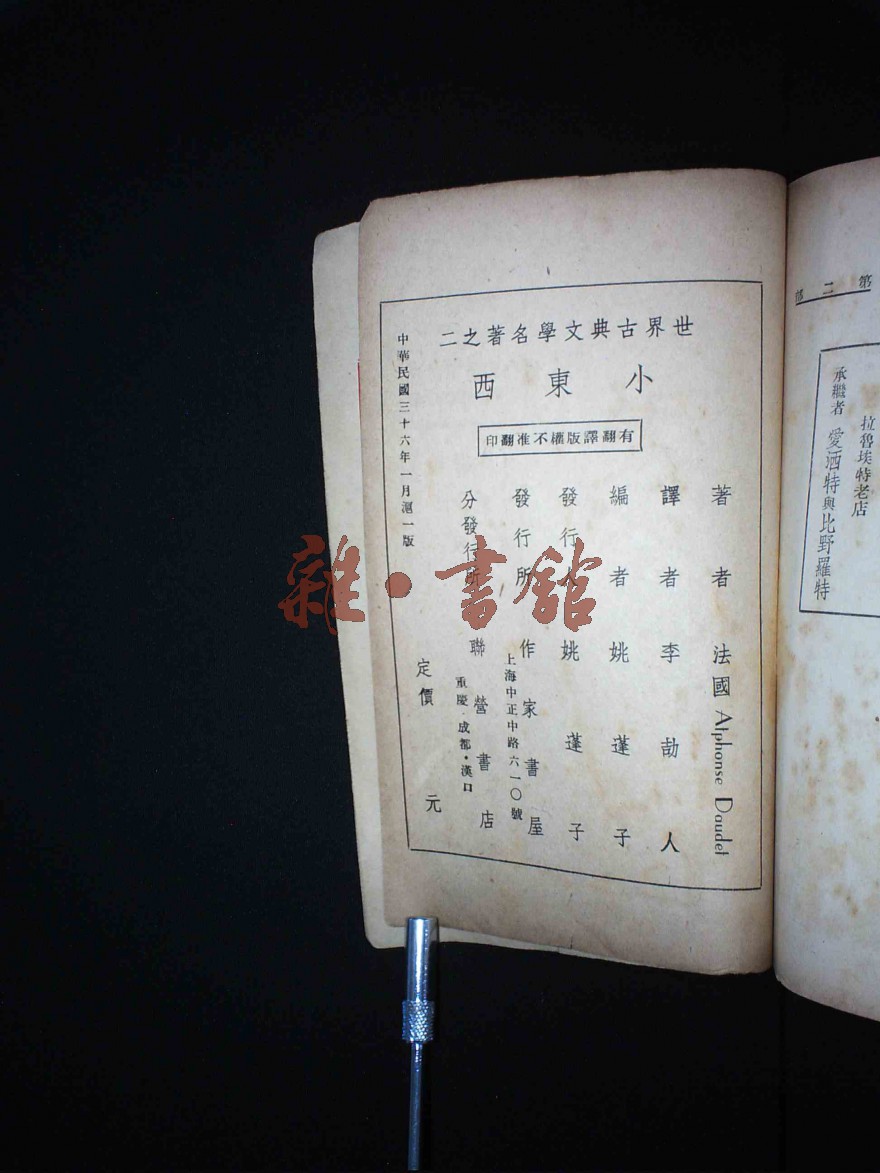 世界古典文學名著之二
小東西
有翻譯版權不准翻印
著者 法國 Alphonse Daudet
譯者 李劼人
編者 姚蓬子
發行人 姚蓬子
發行所 作家書屋
上海中正中路六一〇號
分發行所 聯營書店
重慶·成都·漢口
定價 元
中華民國三十六年一月滬一版
第二部
拉魯埃特老店
承繼者 愛洒特與比野羅特
雜·書館